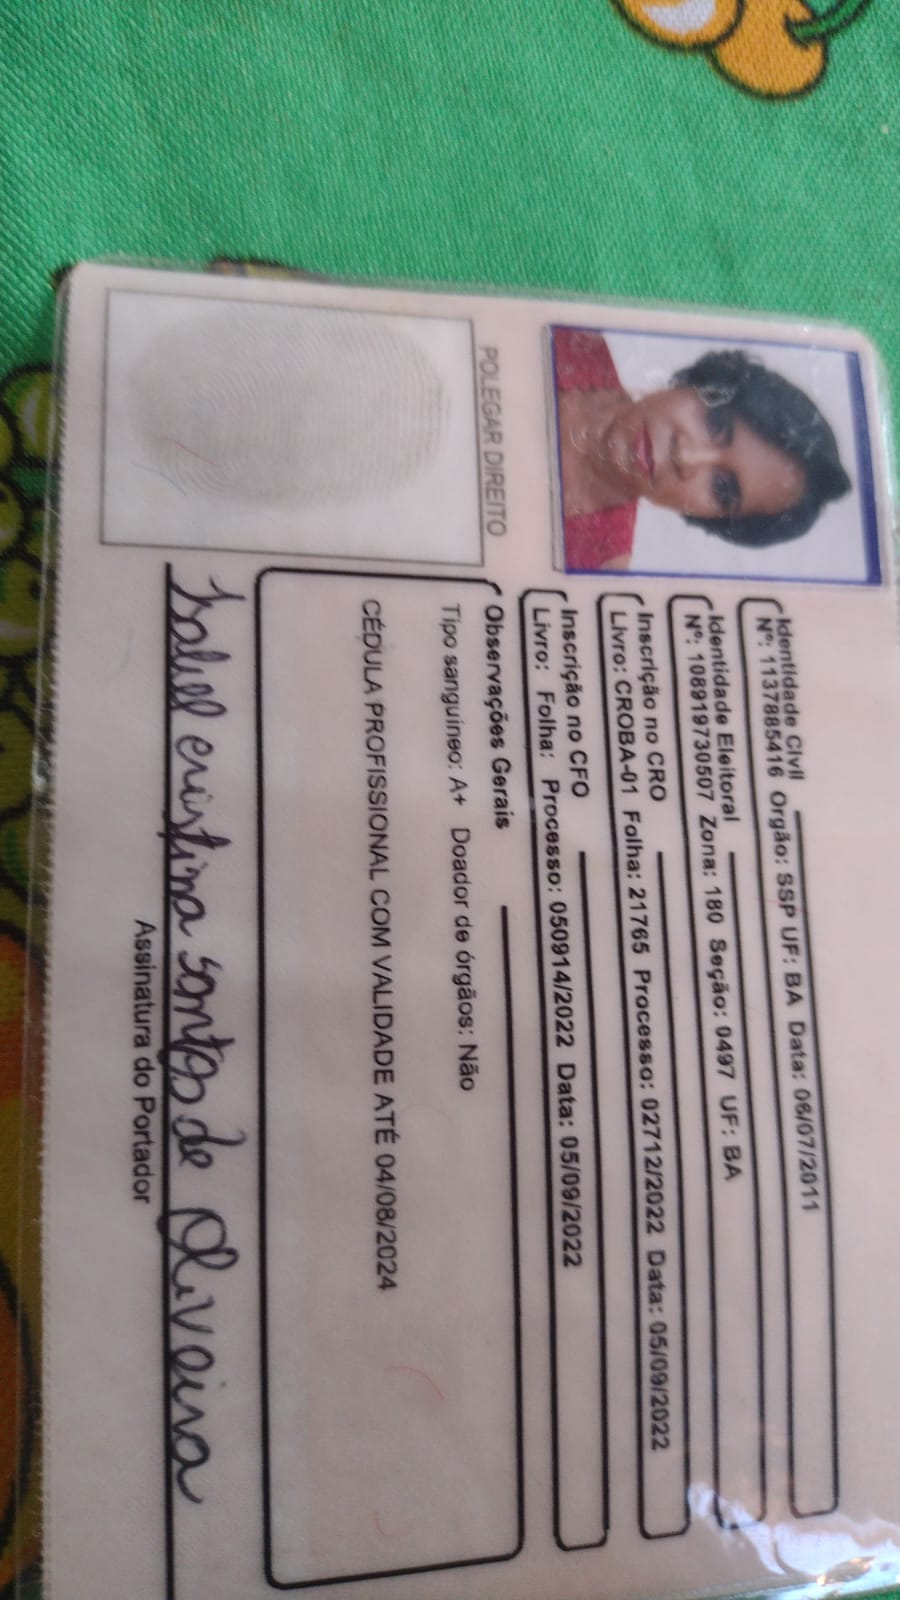 Identidade Civil
Nº: 1137885416 Orgão: SSP UF: BA Data: 06/07/2011
Identidade Eleitoral
Nº: 108919730507 Zona: 180 Seção: 0497 UF: BA
Inscrição no CRO
Livro: CROBA-01 Folha: 21765 Processo: 02712/2022 Data: 05/09/2022
Inscrição no CFO
Livro: Folha: Processo: 050914/2022 Data: 05/09/2022
POLEGAR DIREITO
Observações Gerais
Tipo sanguíneo: A+ Doador de órgãos: Não
CÉDULA PROFISSIONAL COM VALIDADE ATÉ 04/08/2024
cristina santos de Oliveira
Assinatura do Portador